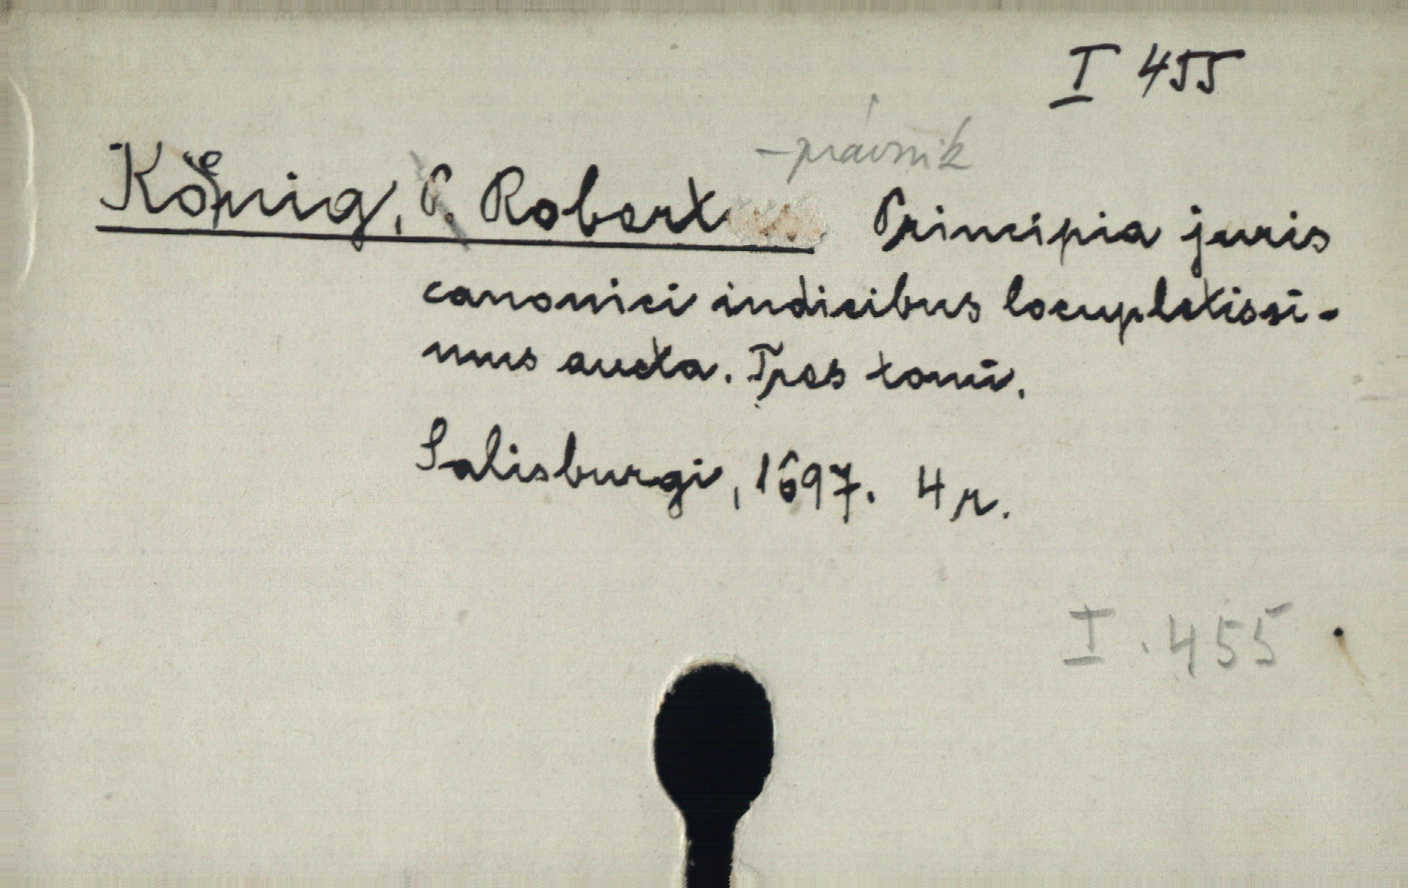 I 455
- právnik
König, P. Robert Principia juris
canonici indicibus locupletissi-
mus aucta. Tres tomi.
Salisburgi, 1697. 4 r.
I. 455